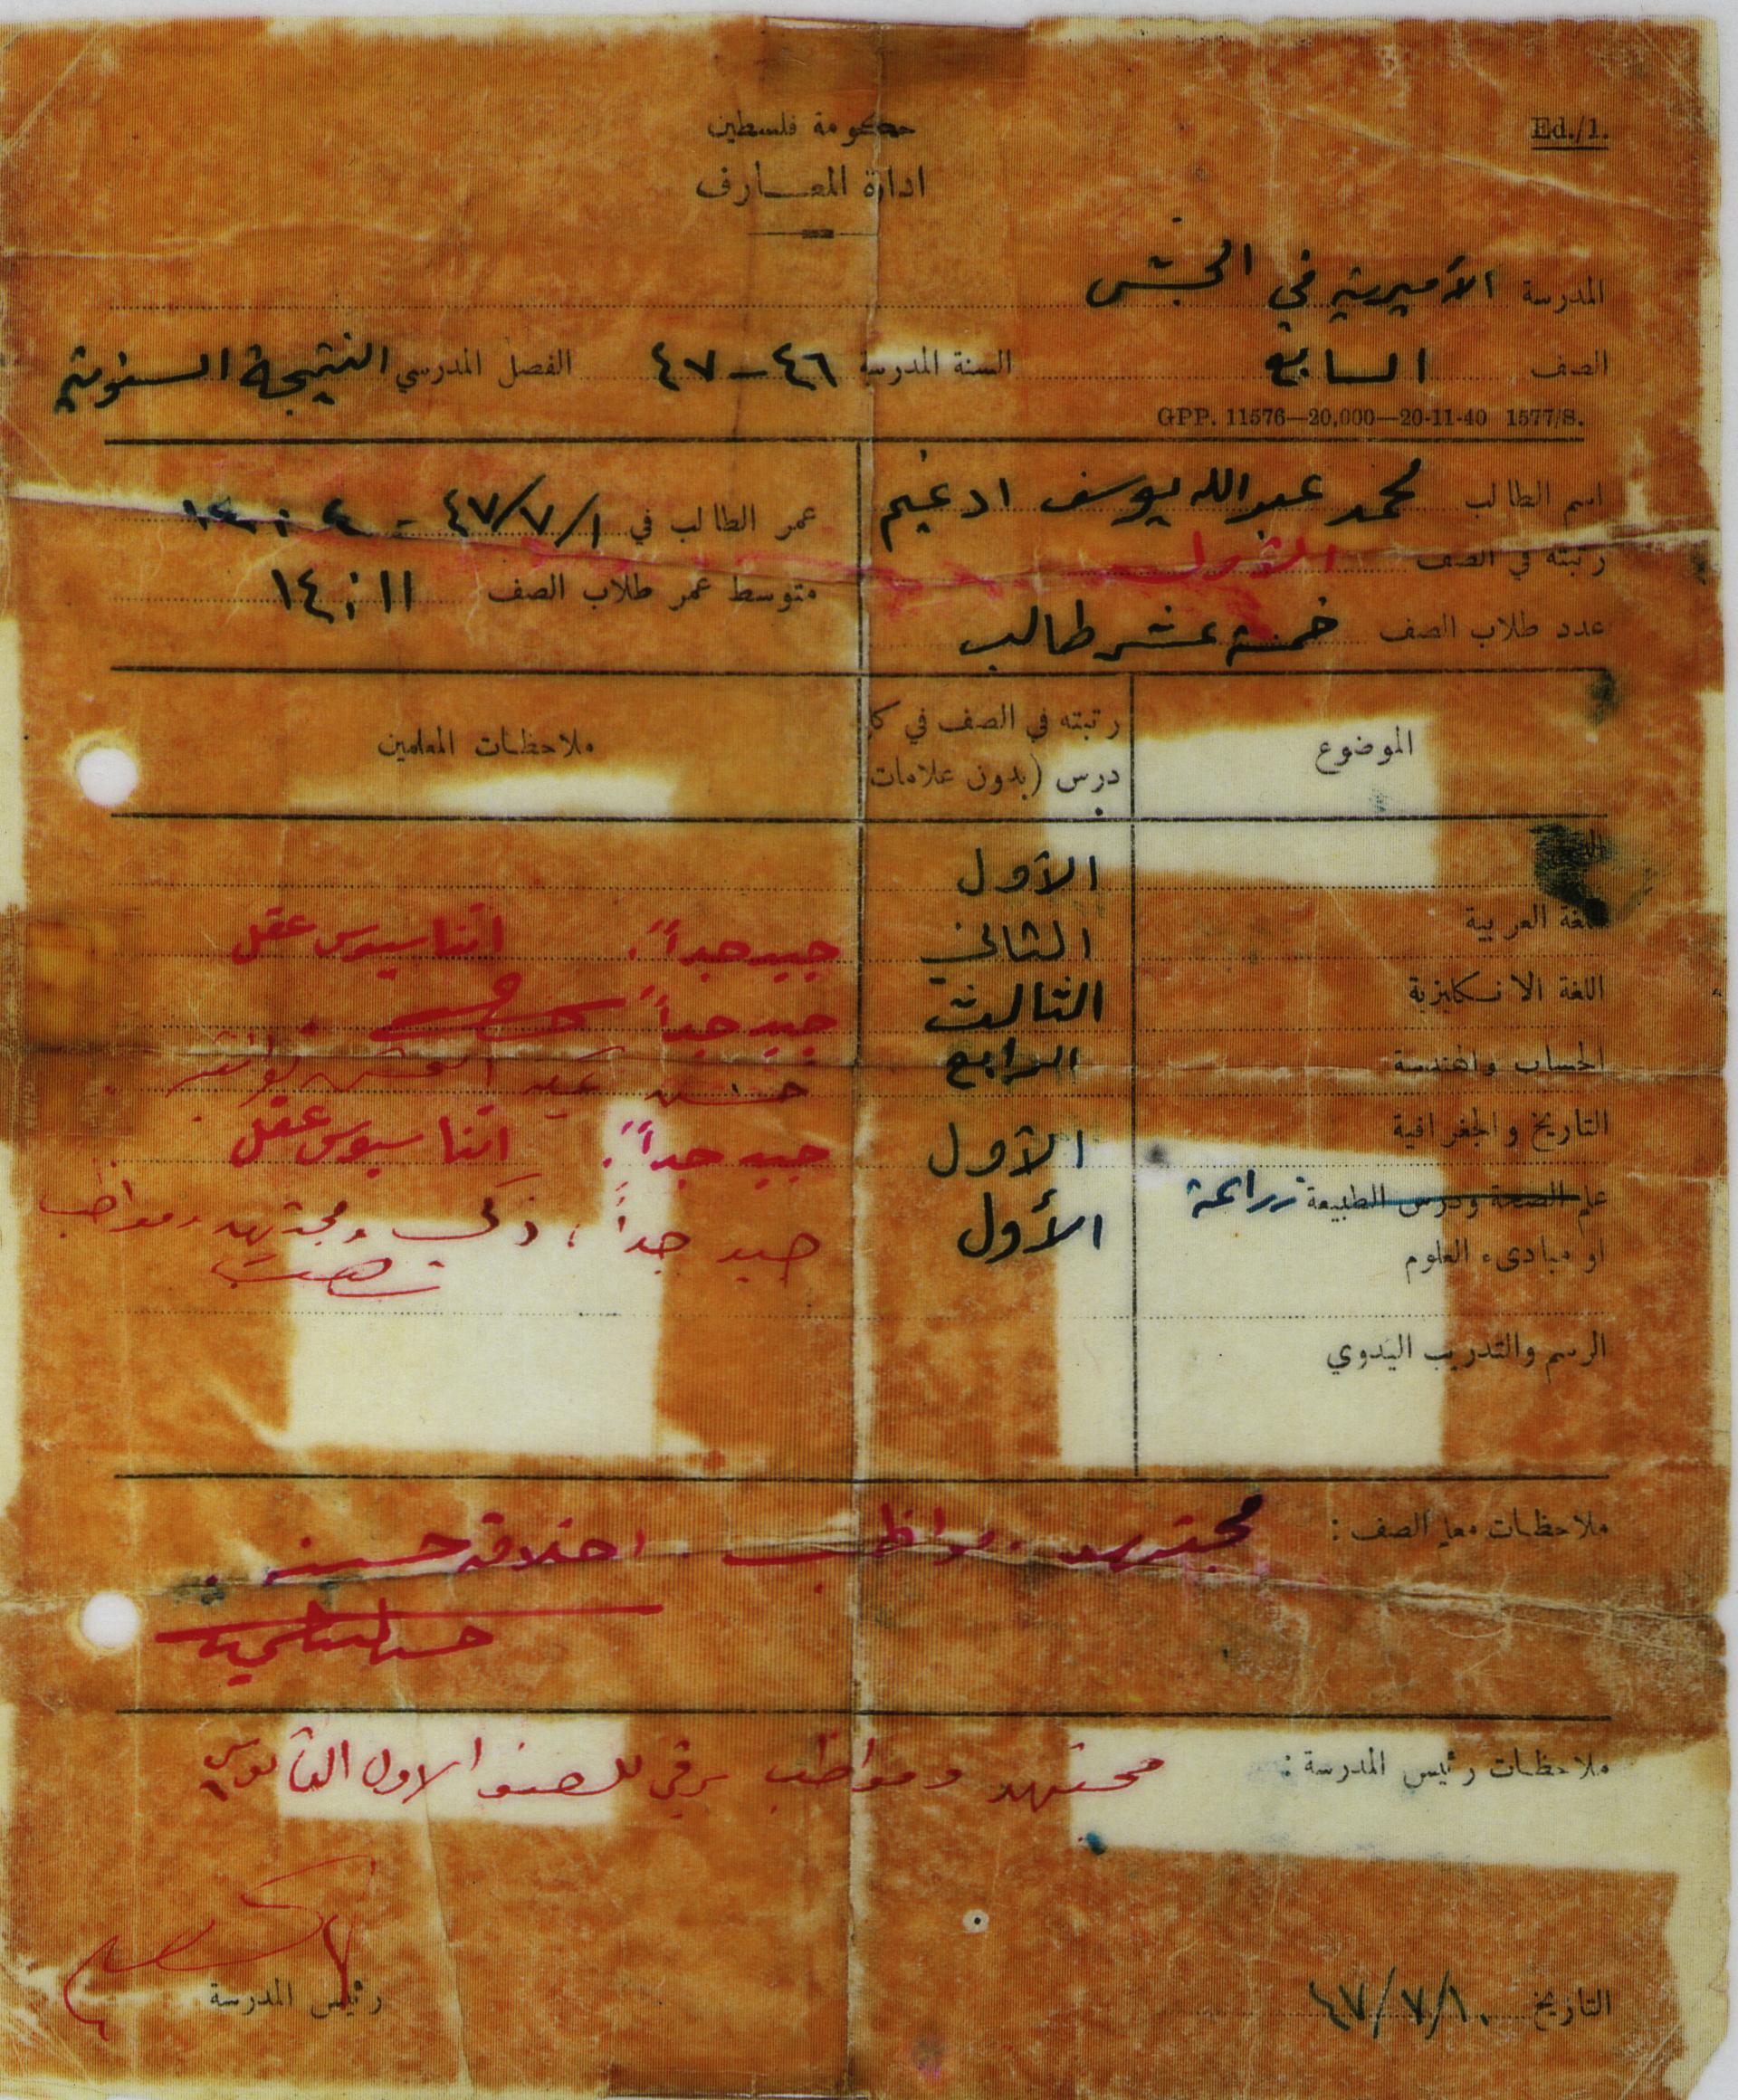 Ed./1.
حكومة فلسطين
ادارة المعارف
المدرسة الأميرية في الجش
الصف السابع السنة المدرسية ٤٦ – ٤٧ الفصل المدرسي النتيجة السنوية
GPP. 11576—20,000—20-11-40 1577/S.
اسم الطالب محمد عبدالله يوسف ادغيم عمر الطالب في ٤٧/٧/١
رتبته في الصف الأول
متوسط عمر طلاب الصف ١٤:١١
عدد طلاب الصف خمسة عشر طالب
الموضوع رتبته في الصف في كل درس (بدون علامات ملاحظات المعلمين
الأول
اللغة العربية الثاني جيد جداً. اتناسيوس عقل
اللغة الانكليزية الثالث جيد جداً.
الحساب والهندسة الرابع حسن
التاريخ والجغرافية الأول جيد جداً. اتناسيوس عقل
علم الصحة ودرس الطبيعة زراعة الأول جيد جداً، ذكي ومجتهد ومواظب
او مبادىء العلوم
الرسم والتدريب اليدوي
ملاحظات معلم الصف: مجتهد. مواظب. اخلاقه حسنة.
ملاحظات رئيس المدرسة: مجتهد ومواظب رقي للصف الاول الثانوي
رئيس المدرسة
التاريخ ٤٧/٧/١٠